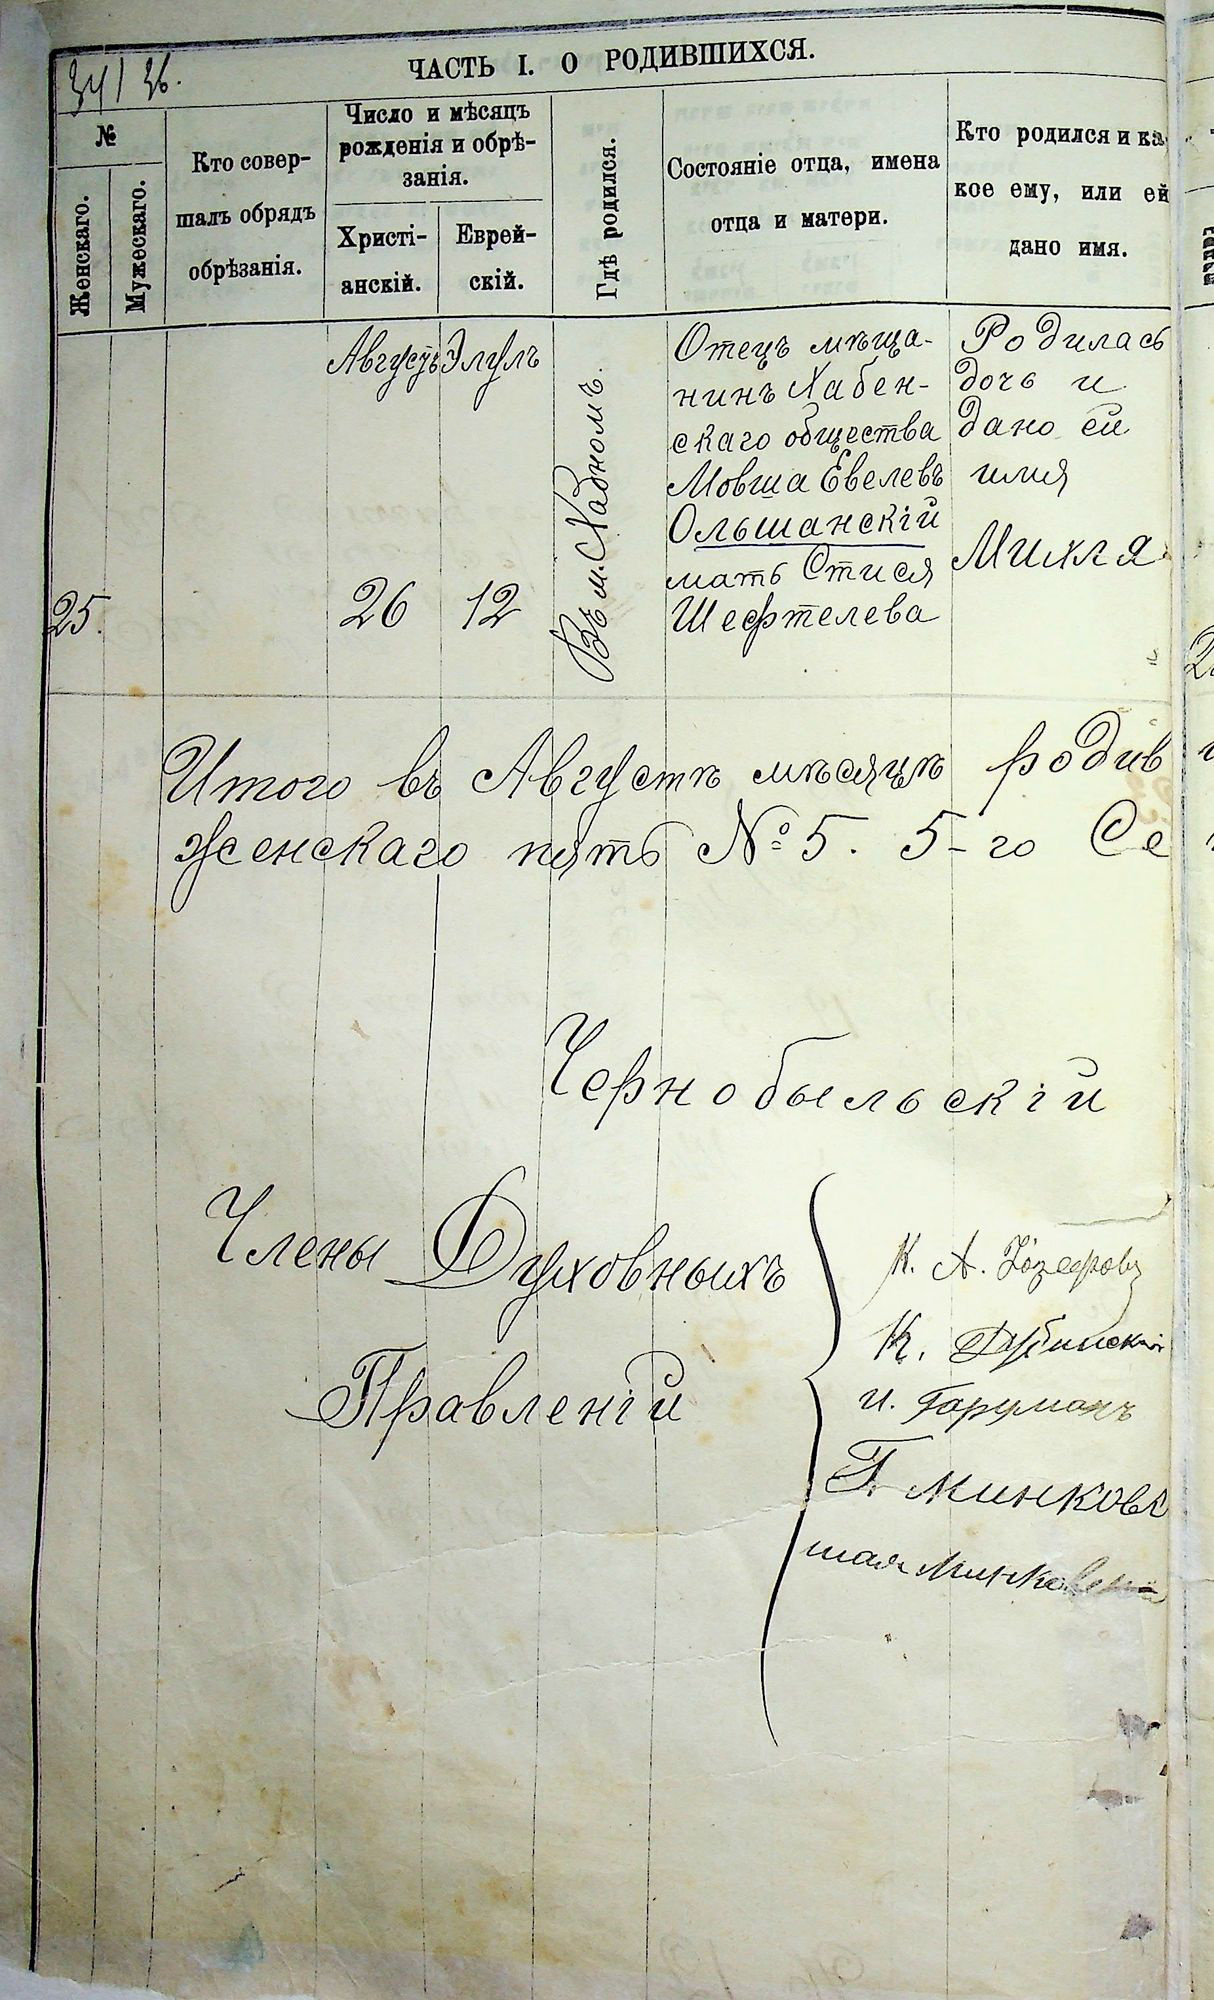 34/36.
ЧАСТЬ I. О РОДИВШИХСЯ.
№
Женскаго.
Мужескаго.
Кто совер-
шалъ обрядъ
обрѣзанія.
Число и мѣсяцъ
рожденія и обрѣ-
занія.
Христі-
анскій.
Еврей-
скій.
Гдѣ родился.
Состояніе отца, имена
отца и матери.
Кто родился и ка
кое ему, или ей
дано имя.
25.
Августъ
26
Элулъ
12
Въ м. Хабномъ.
Отецъ мѣща-
нинъ Хабен-
скаго общества
Мовша Евелевъ
Ольшанскій
мать Стися
Шефтелева
Родилась
дочь и
дано ей
имя
Михля
Итого въ Августѣ мѣсяцѣ родив
женскаго пять № 5. 5-го Се
Чернобыльскій
Члены Духовныхъ
Правленій
К. А. Іозефовъ
К. Дубинскій
И.
Г. Минковс